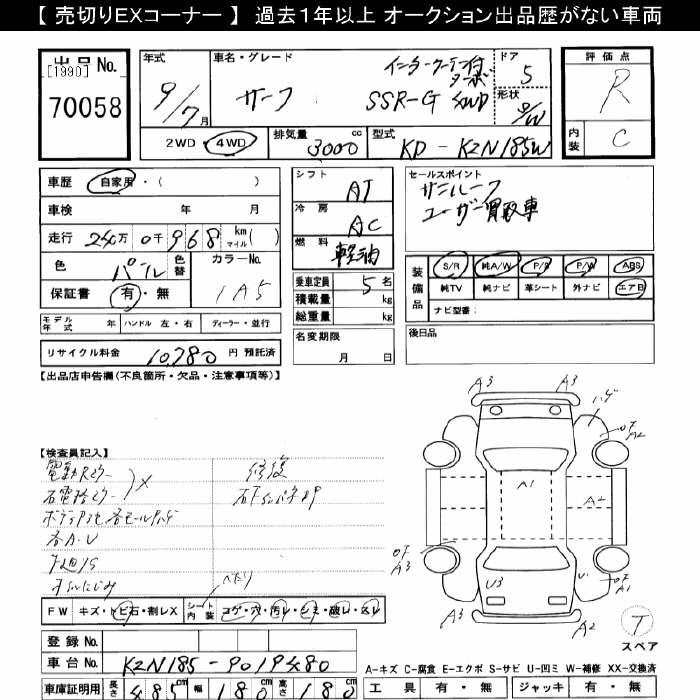 【 売切りEXコーナー 】 過去1年以上 オークション出品歴がない車両
出品No.
[1990]
70058
年式 9/7月
車名・グレード サーフ インタークーラー付ターボ SSR-G 4WD
ドア 5
形状 S/W
2WD・4WD
排気量 3000 cc
型式 KD-KZN185W
評価点 R
内装 C
車歴 自家用・( )
車検 年 月
走行 24万0千968 km マイル( )
色 パール 色替 カラーNo. 1A5
保証書 有・無
シフト AT
冷房 AC
燃料 軽油
乗車定員 5名
積載量 kg
総重量 kg
名変期限 月 日
セールスポイント
サンルーフ
ユーザー買取車
装備品 S/R 純A/W P/S P/W ABS
純TV 純ナビ 革シート 外ナビ エアB
ナビ型番:
後日品
モデル年式 年 ハンドル 左・右 ディーラー・並行
リサイクル料金 10,780 円 預託済
【出品店申告欄(不良箇所・欠品・注意事項等)】
【検査員記入】
修復
各A・U
下廻りS
FW キズ・トビ石・割レX シート内装 コゲ・穴・汚レ・シミ・破レ・スレ
登録No.
車台No. KZN185-9019480
車庫証明用 長さ 485cm 幅 180cm 高さ 180cm
A3 A3
A2
A1
A2
A3
U3
A1
A3 A2
T
スペア
A-キズ C-腐食 E-エクボ S-サビ U-凹ミ W-補修 XX-交換済
工具 有・無 ジャッキ 有・無